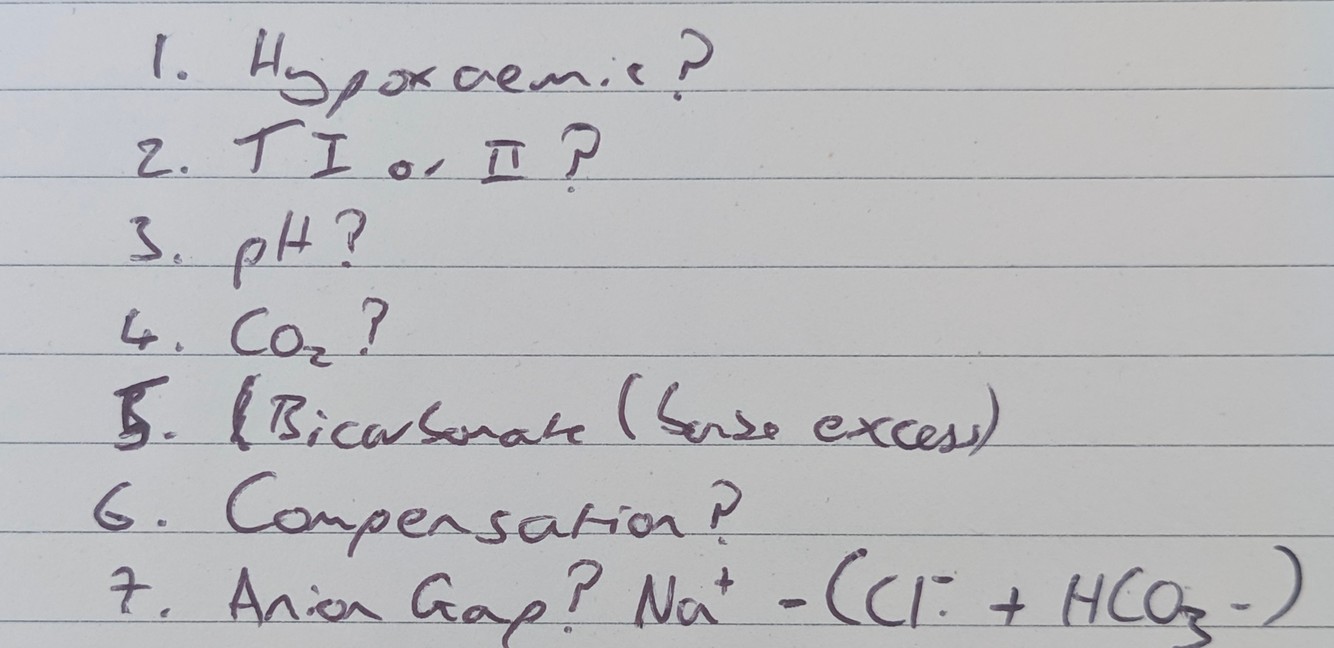 1. Hypoxaemic?
2. T I or II?
3. pH?
4. CO₂?
5. Bicarbonate (base excess)
6. Compensation?
7. Anion Gap? Na⁺ - (Cl⁻ + HCO₃-)